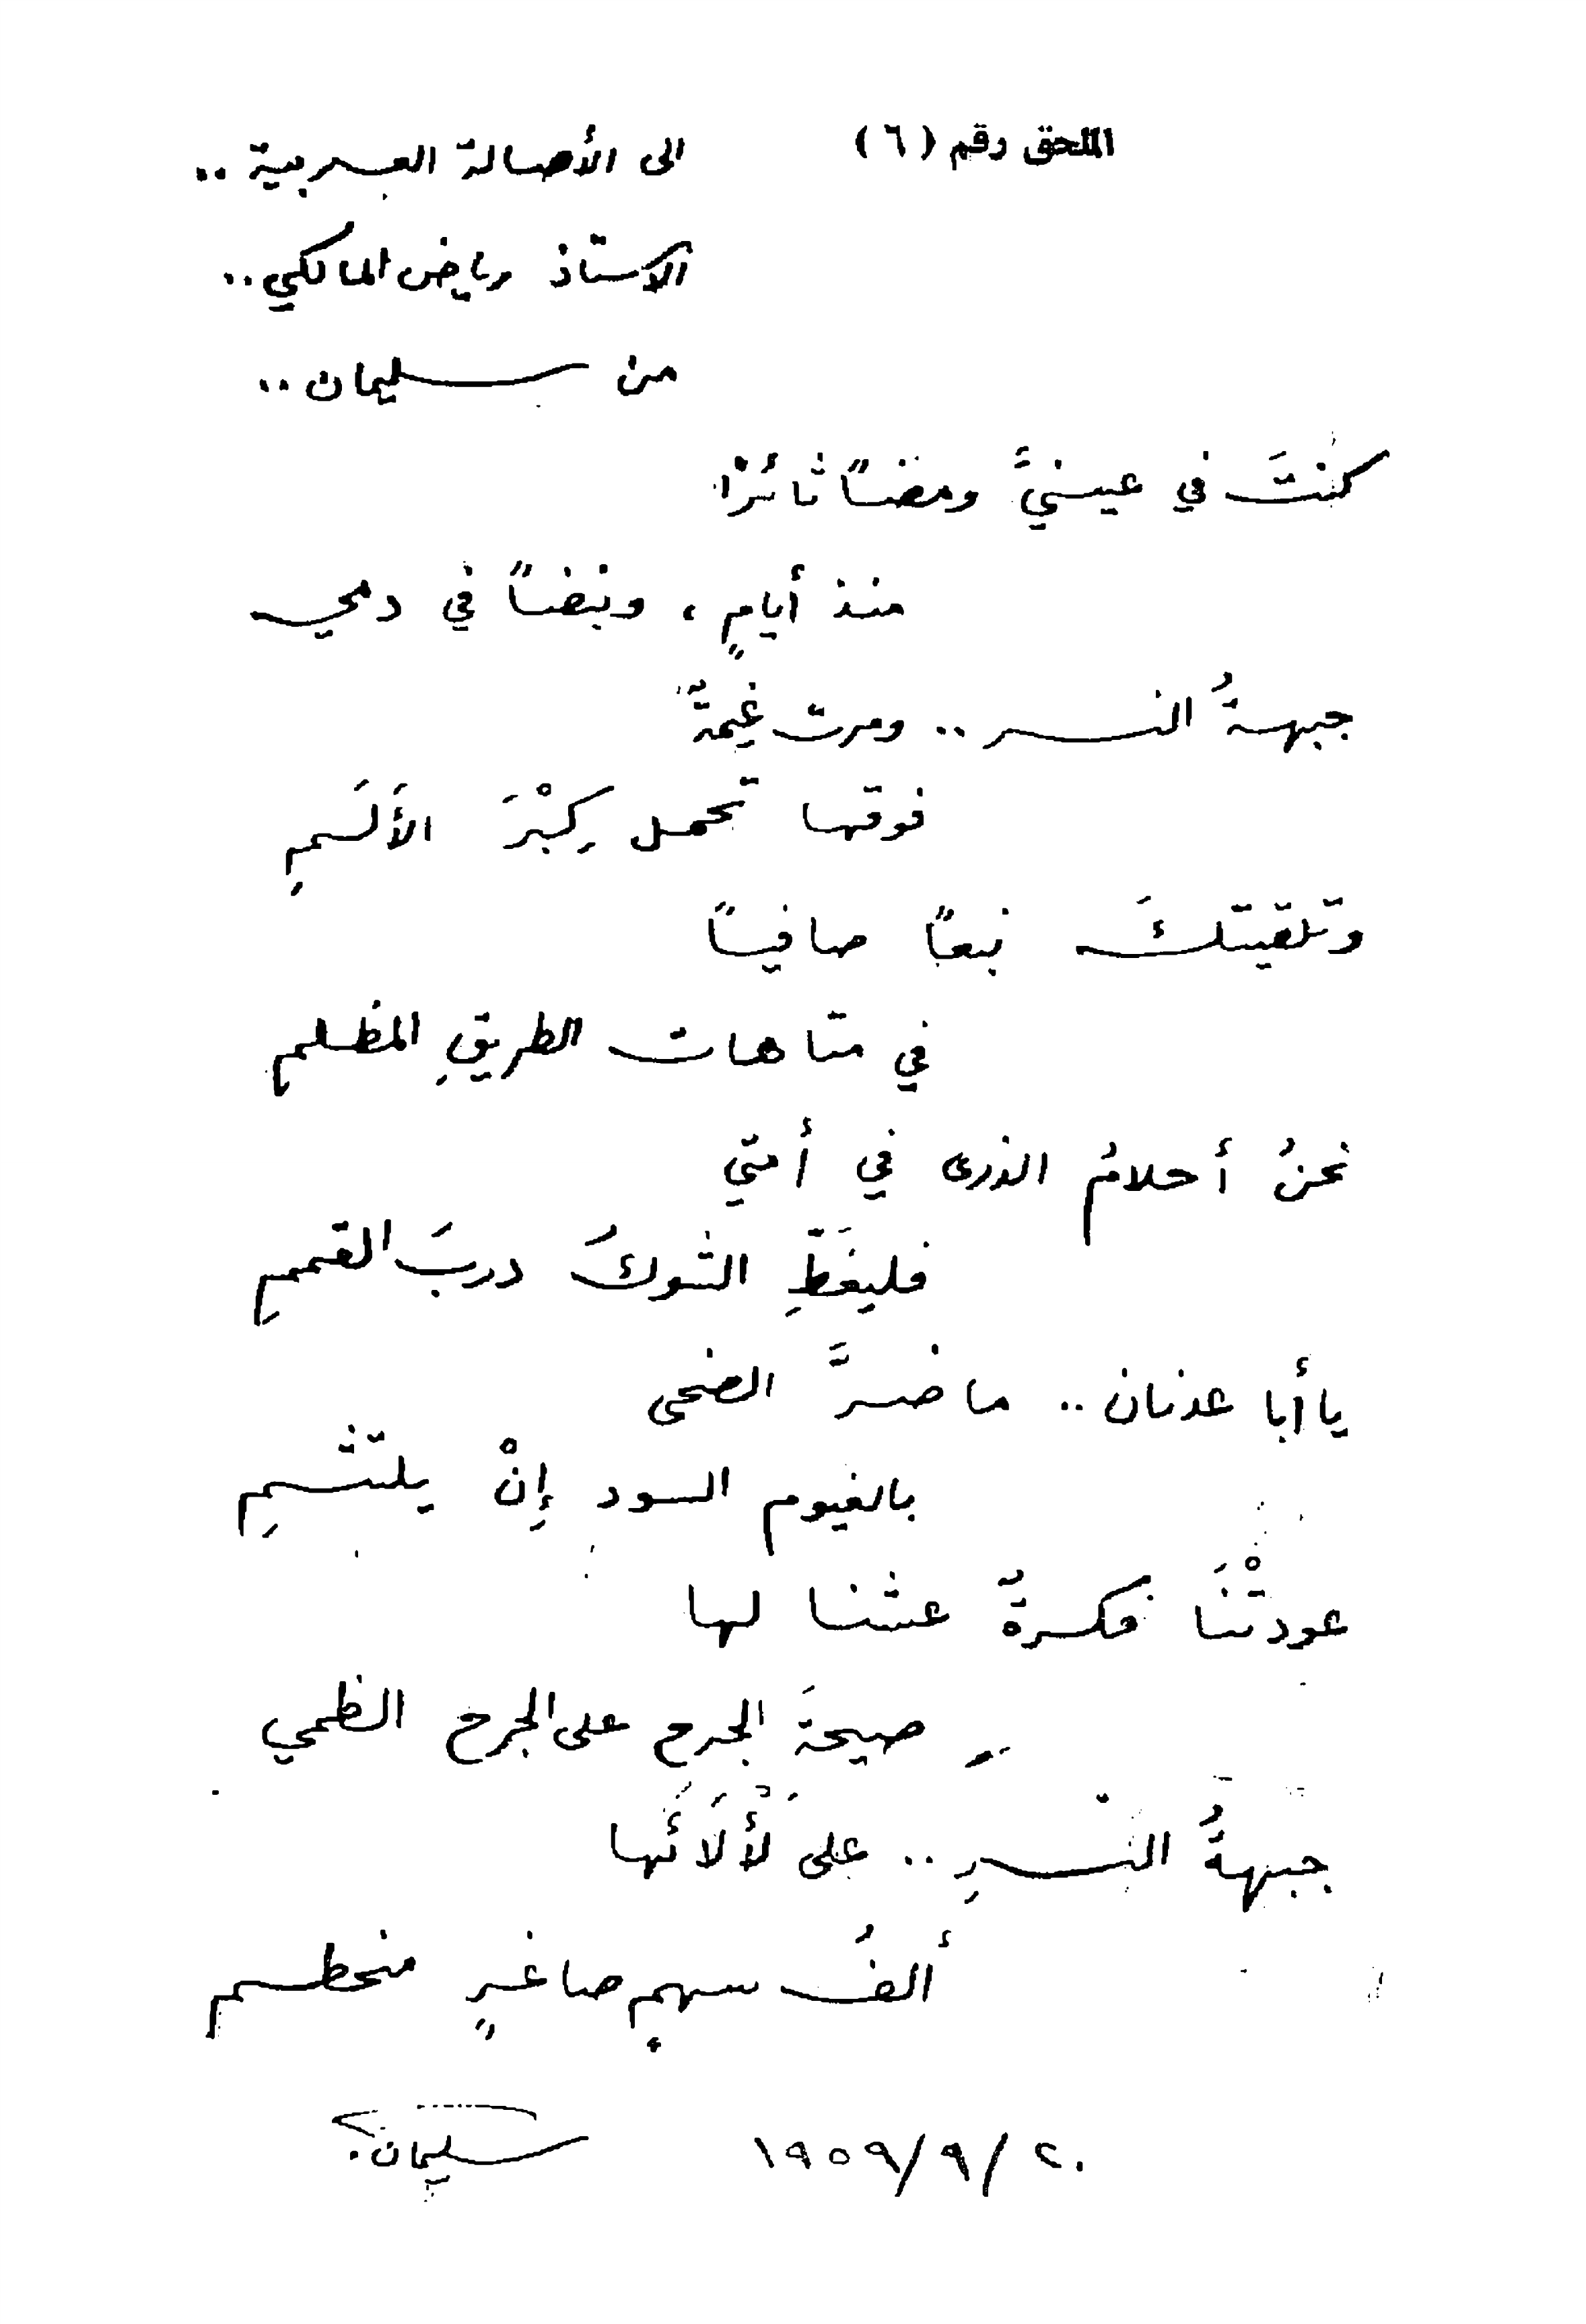 الملحق رقم (٦)
الى الأصالة العربية ..
الاستاذ رياض المالكي ..
من سليمان ..
كنتَ في عينيَّ ومضاً ثائرًا
منذ أيامٍ ، ونبضاً في دمي
جبهةُ النسر .. ومرت غيمةٌ
فوقها تحمل كِبْرَ الأَلَمِ
وتلقيتكَ نبعاً صافياً
في متاهات الطريقِ المظلمِ
نحنُ أحلامُ الذرى في أمتي
فليغَطِّ الشوكُ دربَ القممِ
يا أبا عدنان .. ما ضرَّ الضحى
بالغيوم السود إِنْ يلتثمِ
عودتْنَا فكرةٌ عشنا لها
صيحةَ الجرح على الجرح الظمي
جبهةُ النسرِ .. على لَأْلَائَها
ألفُ سهمٍ صاغرٍ منحطم
٢٠/٩/١٩٥٩
سليمان